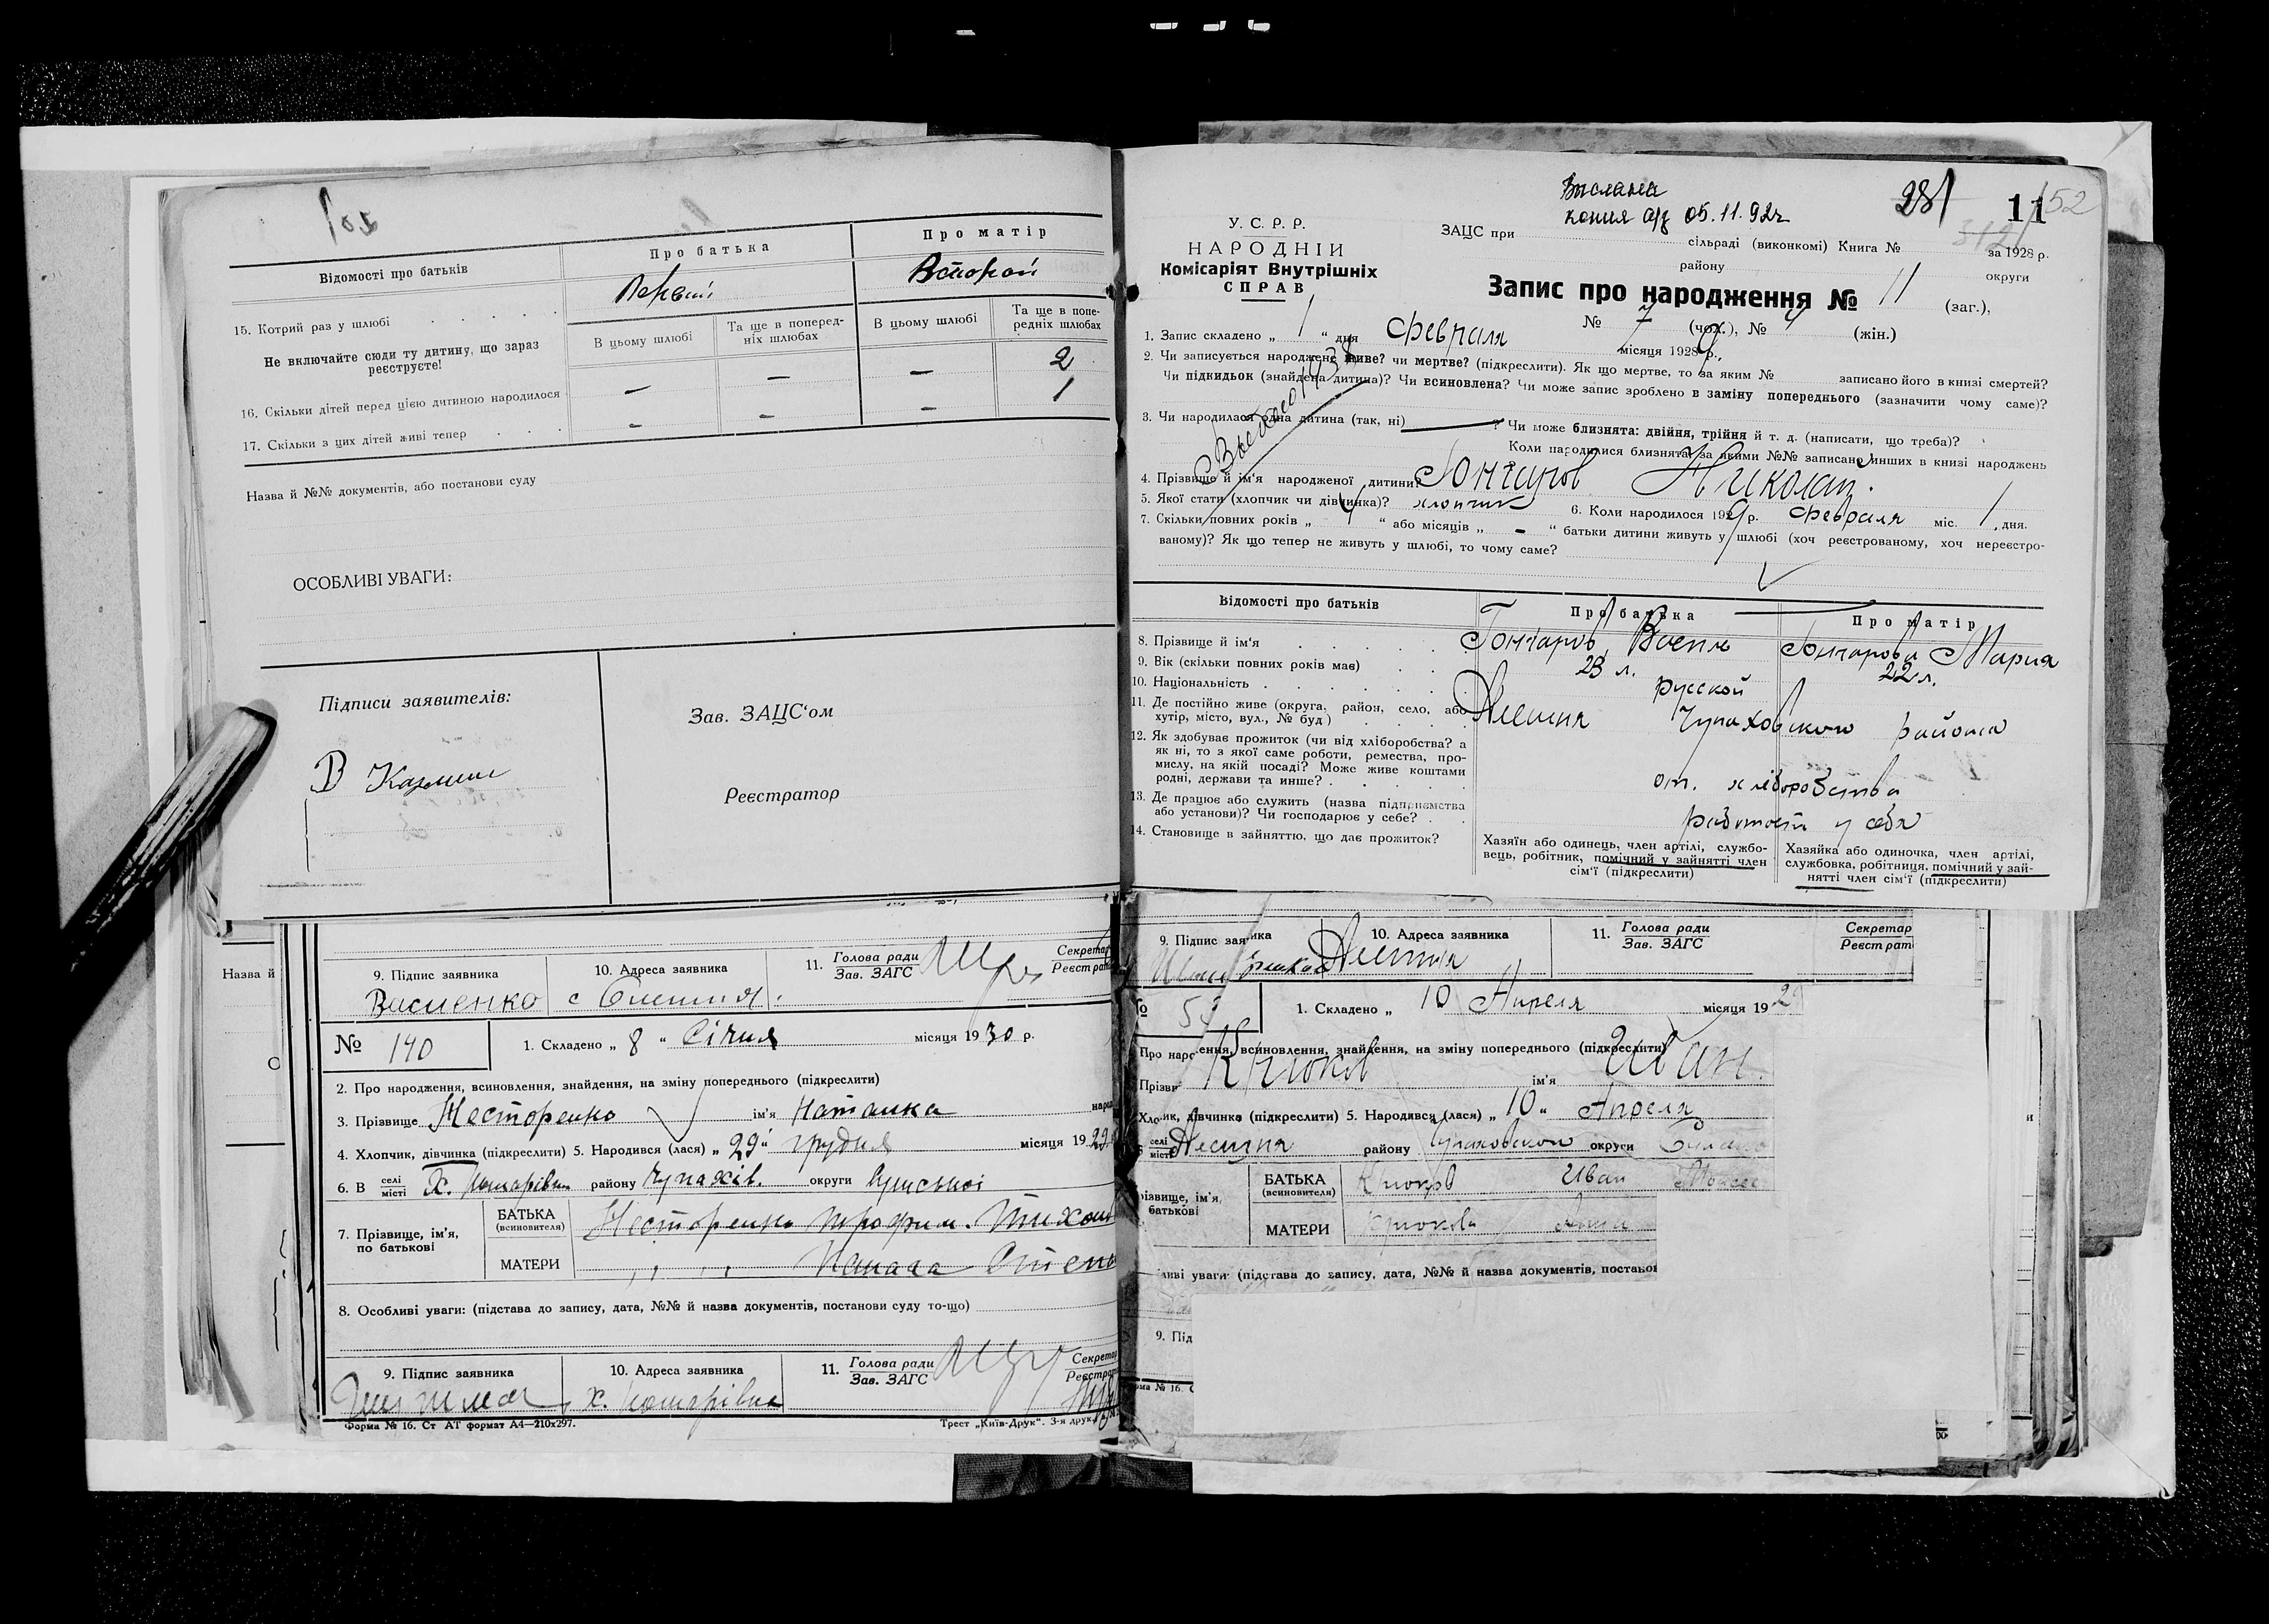 Відомості про батьків
Про батька
Про матір
Первий
Второй
15. Котрий раз у шлюбі
В цьому шлюбі
Та ще в поперед-
ніх шлюбах
В цьому шлюбі
Та ще в попе-
редніх шлюбах
Не включайте сюди ту дитину, що зараз
реєструєте!
16. Скільки дітей перед цією дитиною народилося
— — — 2
17. Скільки з цих дітей живі тепер
— — — 1
Назва й №№ документів, або постанови суду
ОСОБЛИВІ УВАГИ:
Підписи заявителів:
Зав. ЗАЦС‘ом
Реєстратор
Назва й
9. Підпис заявника
10. Адреса заявника
11. Голова ради
Зав. ЗАГС
Секретар
Реєстрат
Василенко
№ 140
1. Складено „ 8 “ Січня місяця 1930 р.
2. Про народження, всиновлення, знайдення, на зміну попереднього (підкреслити)
3. Прізвище Несторенко ім'я Наталка
4. Хлопчик, дівчинка (підкреслити) 5. Народився (лася) „ 29 “ грудня місяця 1929
6. В селі
місті
району Чупахів. округи
7. Прізвище, ім'я,
по батькові
БАТЬКА
(всиновителя)
Несторенко Трофим. Тихон
МАТЕРИ
8. Особливі уваги: (підстава до запису, дата, №№ й назва документів, постанови суду то-що)
9. Підпис заявника
10. Адреса заявника
11. Голова ради
Зав. ЗАГС
Секретар
Реєстрат
Форма № 16. Ст АТ формат А4—210х297.
Трест „Київ-Друк“. 3-я друк.
Выслана
копия а/з 05.11.92г
281
11
52
У. С. Р. Р.
НАРОДНІЙ
Комісаріят Внутрішніх
СПРАВ
ЗАЦС при
сільраді (виконкомі) Книга №
за 1928 р.
району
округи
Запис про народження № 11 (заг.),
№ 7 (чол.), № 4 (жін.)
1. Запис складено „ 1 “ дня Февраля місяця 1929 р.,
2. Чи записується народжене живе? чи мертве? (підкреслити). Як що мертве, то за яким № записано його в книзі смертей?
Чи підкидьок (знайдена дитина)? Чи всиновлена? Чи може запис зроблено в заміну попереднього (зазначити чому саме)?
3. Чи народилася одна дитина (так, ні) ? Чи може близнята: двійня, трійня й т. д. (написати, що треба)?
Коли народилися близнята, за якими №№ записано инших в книзі народжень
4. Прізвище й ім‘я народженої дитини? Гончаров Николай.
5. Якої стати (хлопчик чи дівчинка)? хлопчик 6. Коли народилося 1929 р. Февраля міс. 1 дня.
7. Скільки повних років „ 4 “ або місяців „ – “ батьки дитини живуть у шлюбі (хоч реєстрованому, хоч нереєстро-
ваному)? Як що тепер не живуть у шлюбі, то чому саме?
Відомості про батьків
Про батька
Про матір
8. Прізвище й ім‘я
Гончаров
Гончарова Мария
9. Вік (скільки повних років має)
23 л.
22 л.
10. Національність
русской
11. Де постійно живе (округа, район, село, або
хутір, місто, вул., № буд)
Алешня Чупаховского района
12. Як здобуває прожиток (чи від хліборобства? а
як ні, то з якої саме роботи, ремества, про-
мислу, на якій посаді? Може живе коштами
родні, держави та инше?
от хліборобства
13. Де працює або служить (назва підприємства
або установи)? Чи господарює у себе?
работает у себя
14. Становище в зайняттю, що дає прожиток?
Хазяїн або одинець, член артілі, службо-
вець, робітник, помічний у зайнятті член
сім‘ї (підкреслити)
Хазяйка або одиночка, член артілі,
службовка, робітниця, помічний у зай-
нятті член сім‘ї (підкреслити)
9. Підпис заявника
10. Адреса заявника
11. Голова ради
Зав. ЗАГС
Секретар
Реєстрат
Алешня
1. Складено „ 10 Апреля місяця 19 29
Про народження, всиновлення, знайдення, на зміну попереднього (підкреслити)
Крюков ім'я Иван.
дівчинка (підкреслити) 5. Народився (лася) „ 10 “ Апреля
селі
місті
Алешня району Чупаховского округи
ім'я,
батькові
БАТЬКА
(всиновителя)
Крюков Иван
МАТЕРИ
Крюкова Анна
уваги: (підстава до запису, дата, №№ й назва документів, постанов
9. Під